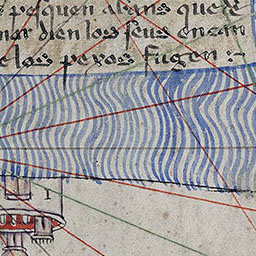 pesquen abans que de
mar dien los seus encan
e los pexos fugen :~